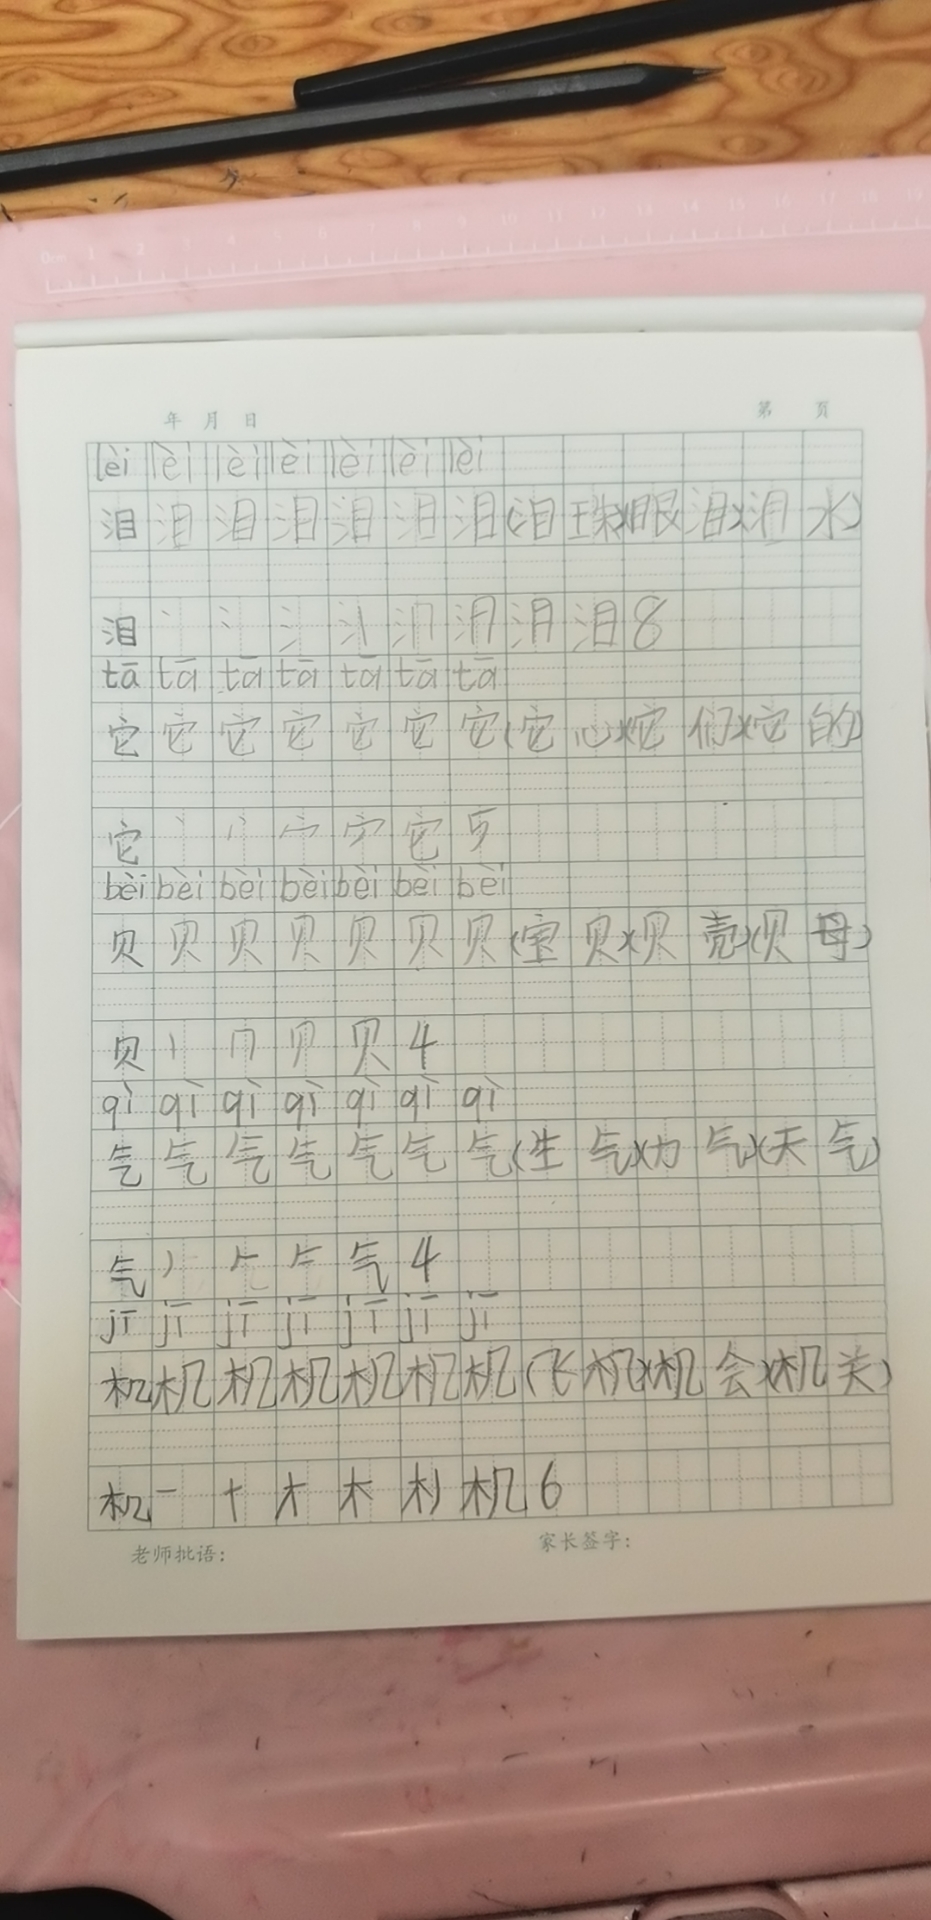 0cm 1 2 3 4 5 6 7 8 9 10 11 12 13 14 15 16 17 18 19
年 月 日 第 页
lèi lèi lèi lèi lèi lèi lèi
泪 泪 泪 泪 泪 泪 泪 (泪 珠)(眼 泪)(泪 水)
泪 丶 冫 氵 泪 8
tā tā tā tā tā tā tā
它 它 它 它 它 它 它 (它 心)(它 们)(它 的)
它 丶 宀 它 5
bèi bèi bèi bèi bèi bèi bèi
贝 贝 贝 贝 贝 贝 贝 (宝 贝)(贝 壳)(贝 母)
贝 丨 冂 贝 4
qì qì qì qì qì qì qì
气 气 气 气 气 气 气 (生 气)(力 气)(天 气)
气 丿 𠂉 气 4
jī jī jī jī jī jī jī
机 机 机 机 机 机 机 (飞 机)(机 会)(机 关)
机 一 十 才 木 机 6
老师批语: 家长签字: